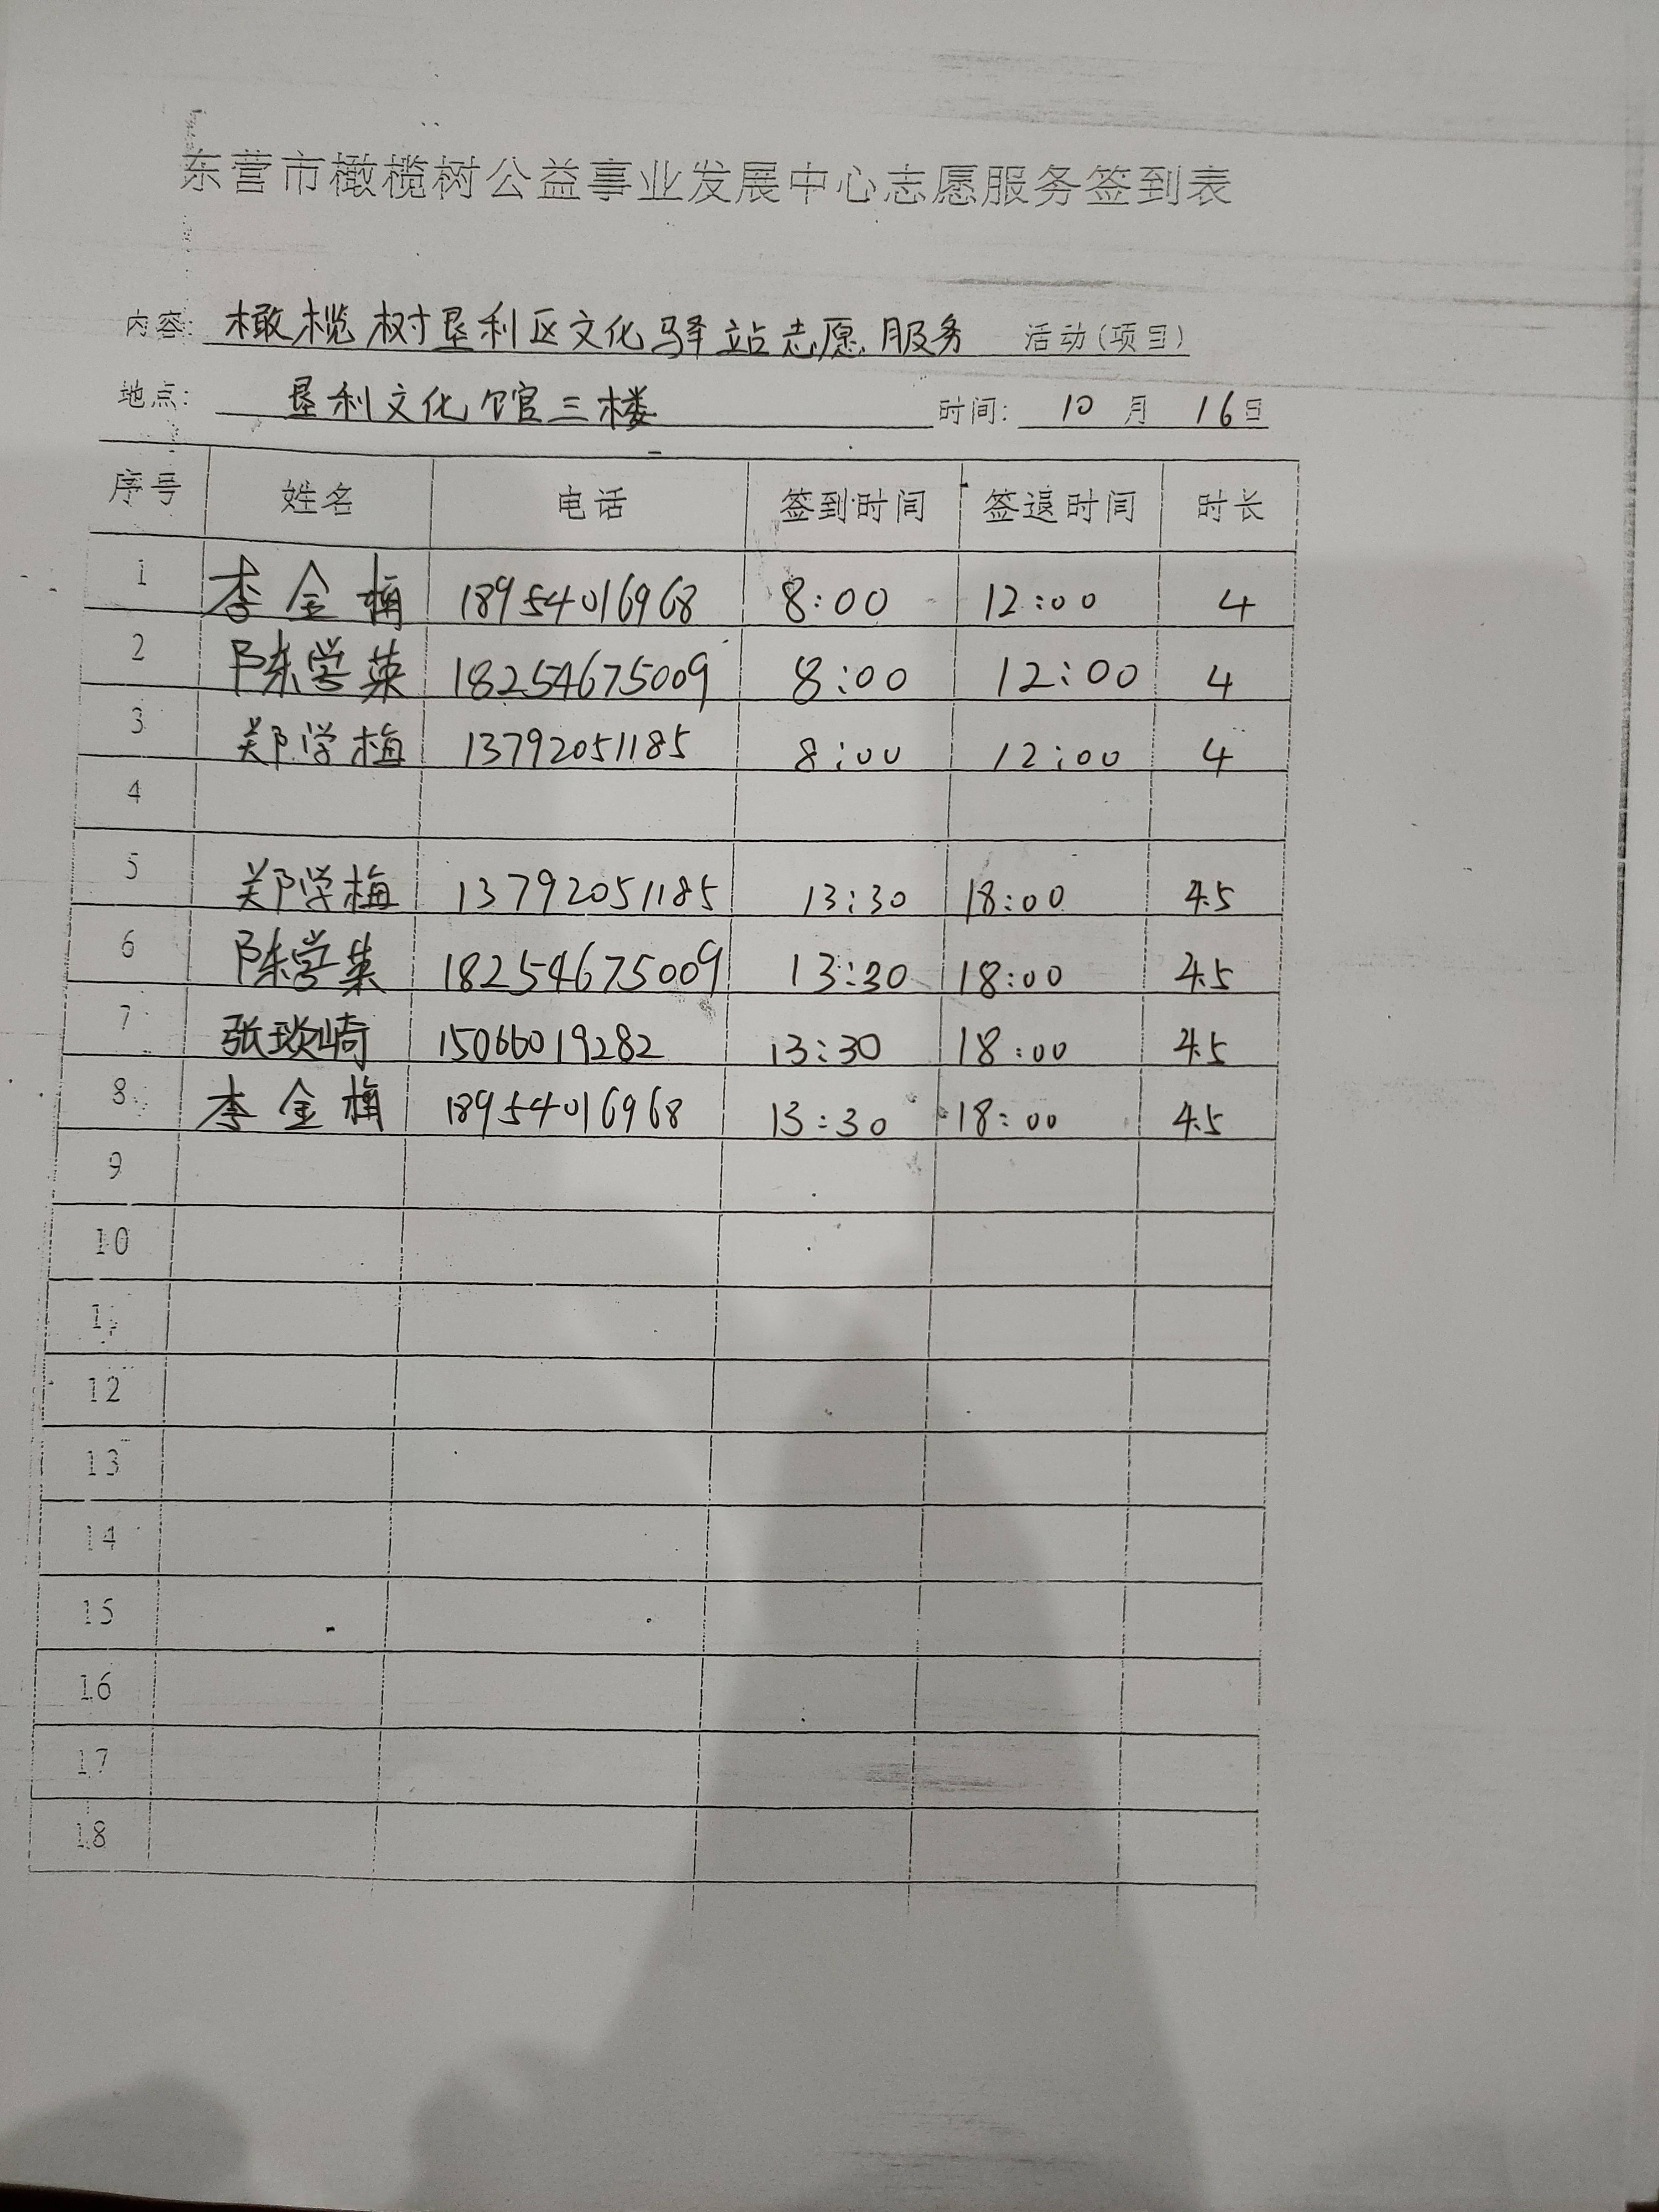 东营市橄榄树公益事业发展中心志愿服务签到表
内容: 橄榄树垦利区文化驿站志愿服务 活动(项目)
地点: 垦利文化馆三楼 时间: 10 月 16日
序号 姓名 电话 签到时间 签退时间 时长
1 李金梅 18954016968 8:00 12:00 4
2 陈学英 18254675009 8:00 12:00 4
3 郑学梅 13792051185 8:00 12:00 4
4
5 郑学梅 13792051185 13:30 18:00 4.5
6 陈学英 18254675009 13:30 18:00 4.5
7 张琰崎 15066019282 13:30 18:00 4.5
8 李金梅 18954016968 13:30 18:00 4.5
9
10
11
12
13
14
15
16
17
18